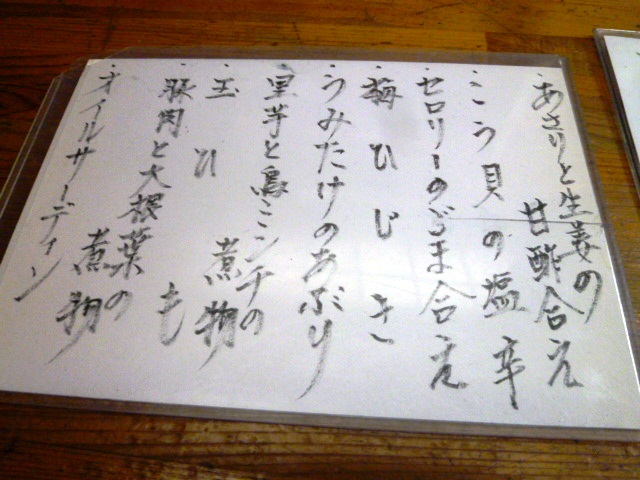 ・あさりと生姜の
甘酢合え
・こう貝の塩辛
・セロリーのごま合え
・梅ひじき
・うみたけのあぶり
・里芋と鳥ミンチの
煮物
・玉ひも
・豚肉と大根葉の
煮物
・オイルサーディン